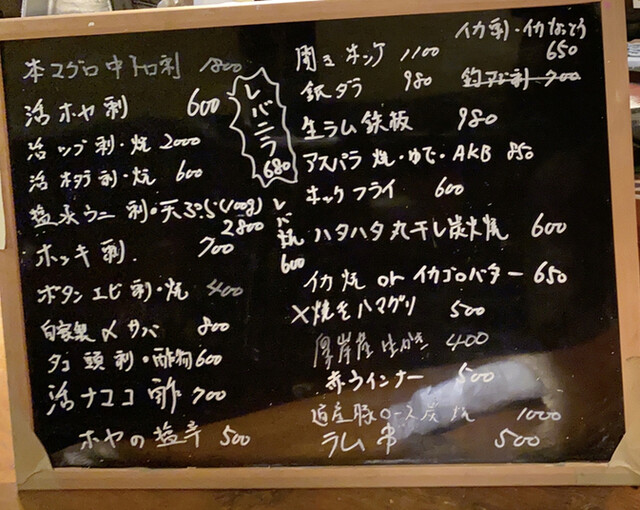 本マグロ中トロ刺 1800
活ホヤ刺 600
活ツブ刺・焼 2000
活ホタテ刺・焼 600
塩水ウニ 刺・天ぷら(100g)
2800
ホッキ刺. 700
ボタンエビ刺・焼 400
自家製〆サバ 800
タコ頭刺・酢物 600
活ナマコ酢 700
ホヤの塩辛 500
レバニラ
680
レバ焼
600
イカ刺・イカなっとう
650
開きホッケ 1100
銀ダラ 980
釣アジ刺 700
生ラム鉄板 980
アスパラ 焼・ゆで・AKB 850
ホッケフライ 600
ハタハタ丸干し炭火焼 600
イカ焼 or イカゴロバター 650
×焼きハマグリ 500
厚岸産生かき 400
赤ウインナー 500
道産豚ロース炭焼 1000
ラム串 500